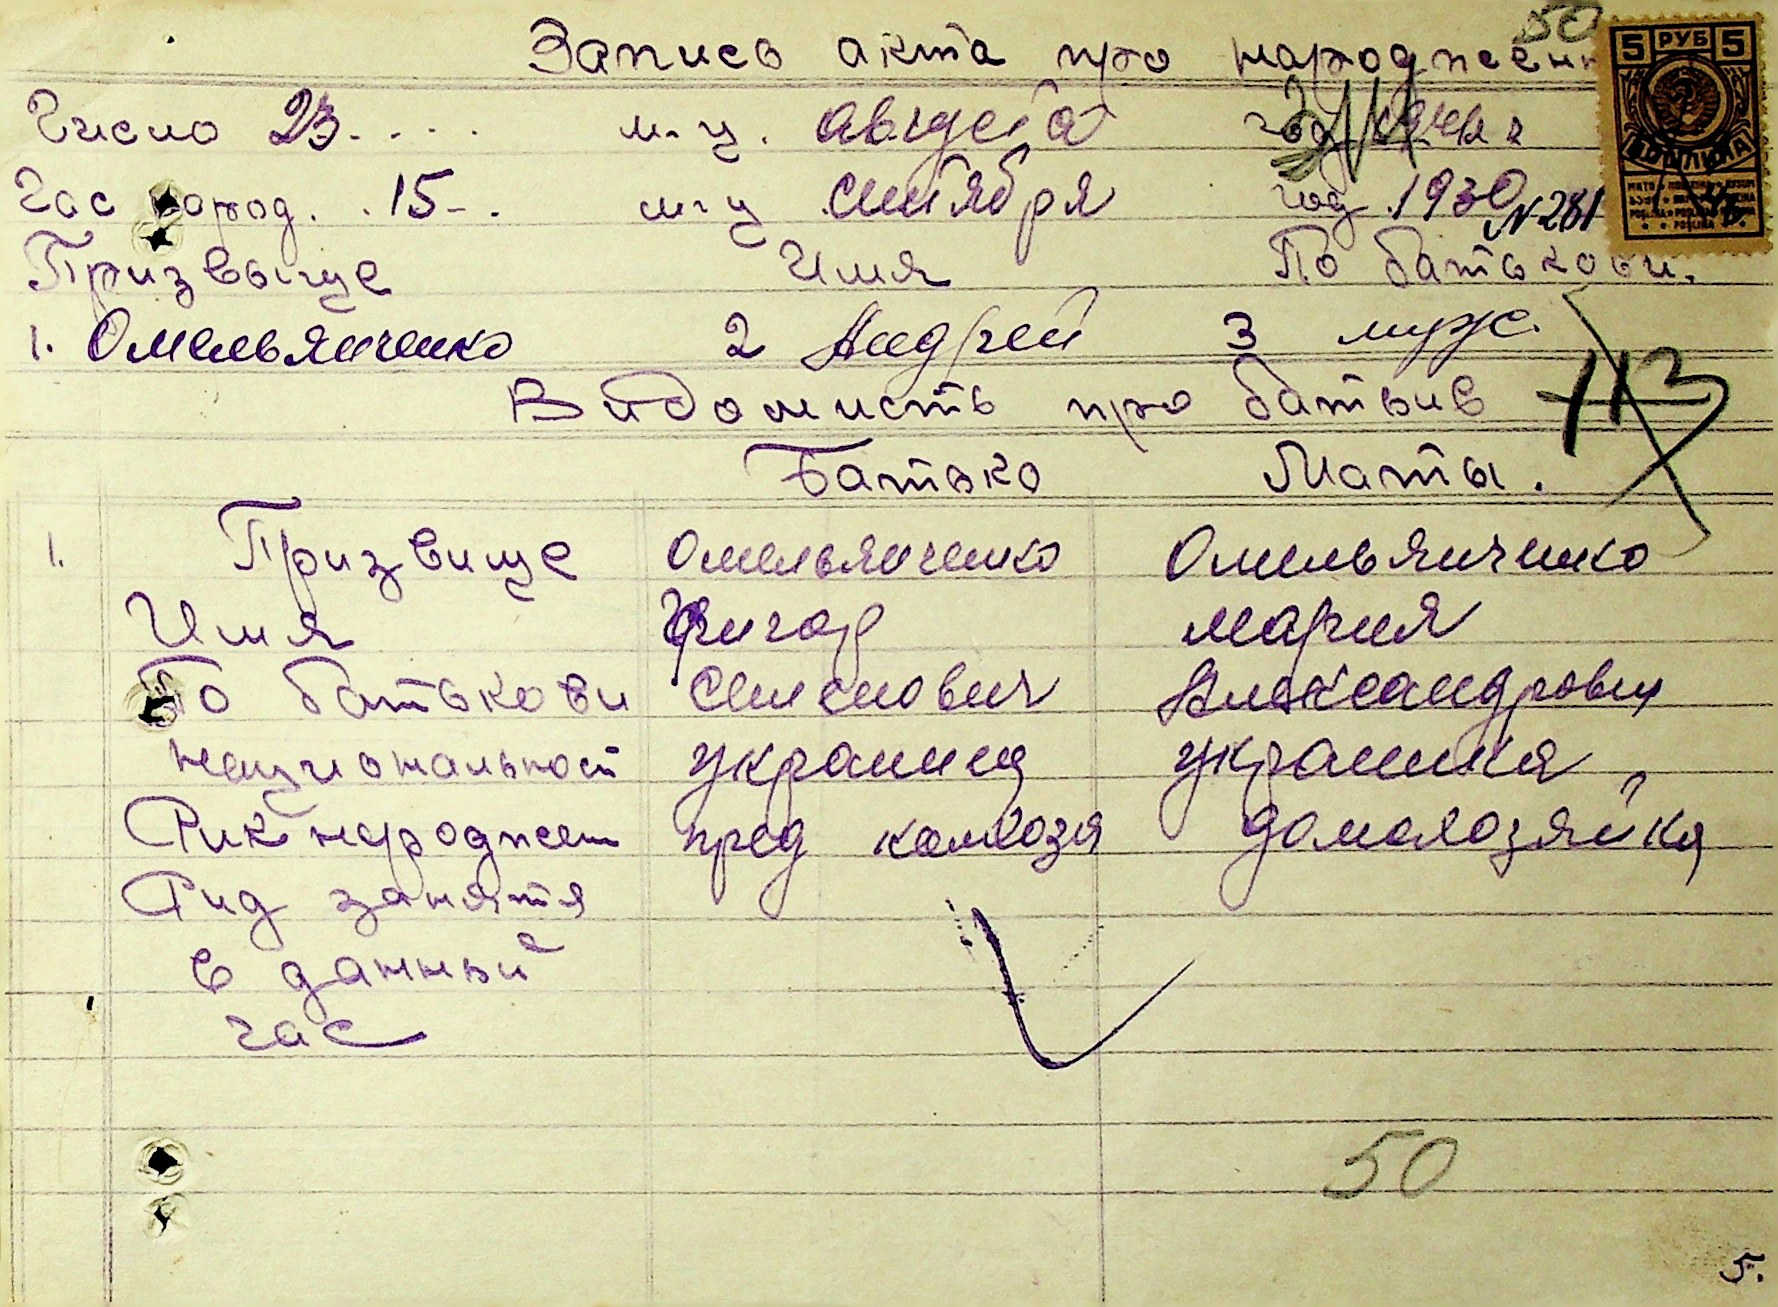 50
Запись акта про народжен
5 РУБ 5
Число 23.... м-ц. августа год
Час народ. . 15-. м-ц сентября год 1930
№ 281
Призвыще Имя По батькови.
1. Омельянченко 2 Андрей 3 муж.
Видомисть про батькив 113
Батько Маты.
1. Призвище Омельянченко Омельянченко
Имя Григор Мария
По батькови Семенович Александровн
Национальност украинец украинка
Рик народжен пред колхозя домохозяйка
Рид занятя
в данный
час
50
5.